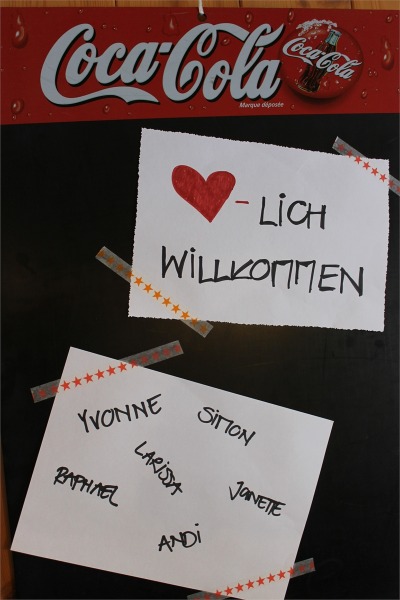 Coca-Cola
Coca-Cola
Marque déposée
- LiCH
WiLLKOMMEN
YVONNE SiMON
LARiSSA
RAPHAEL JANETTE
ANDi